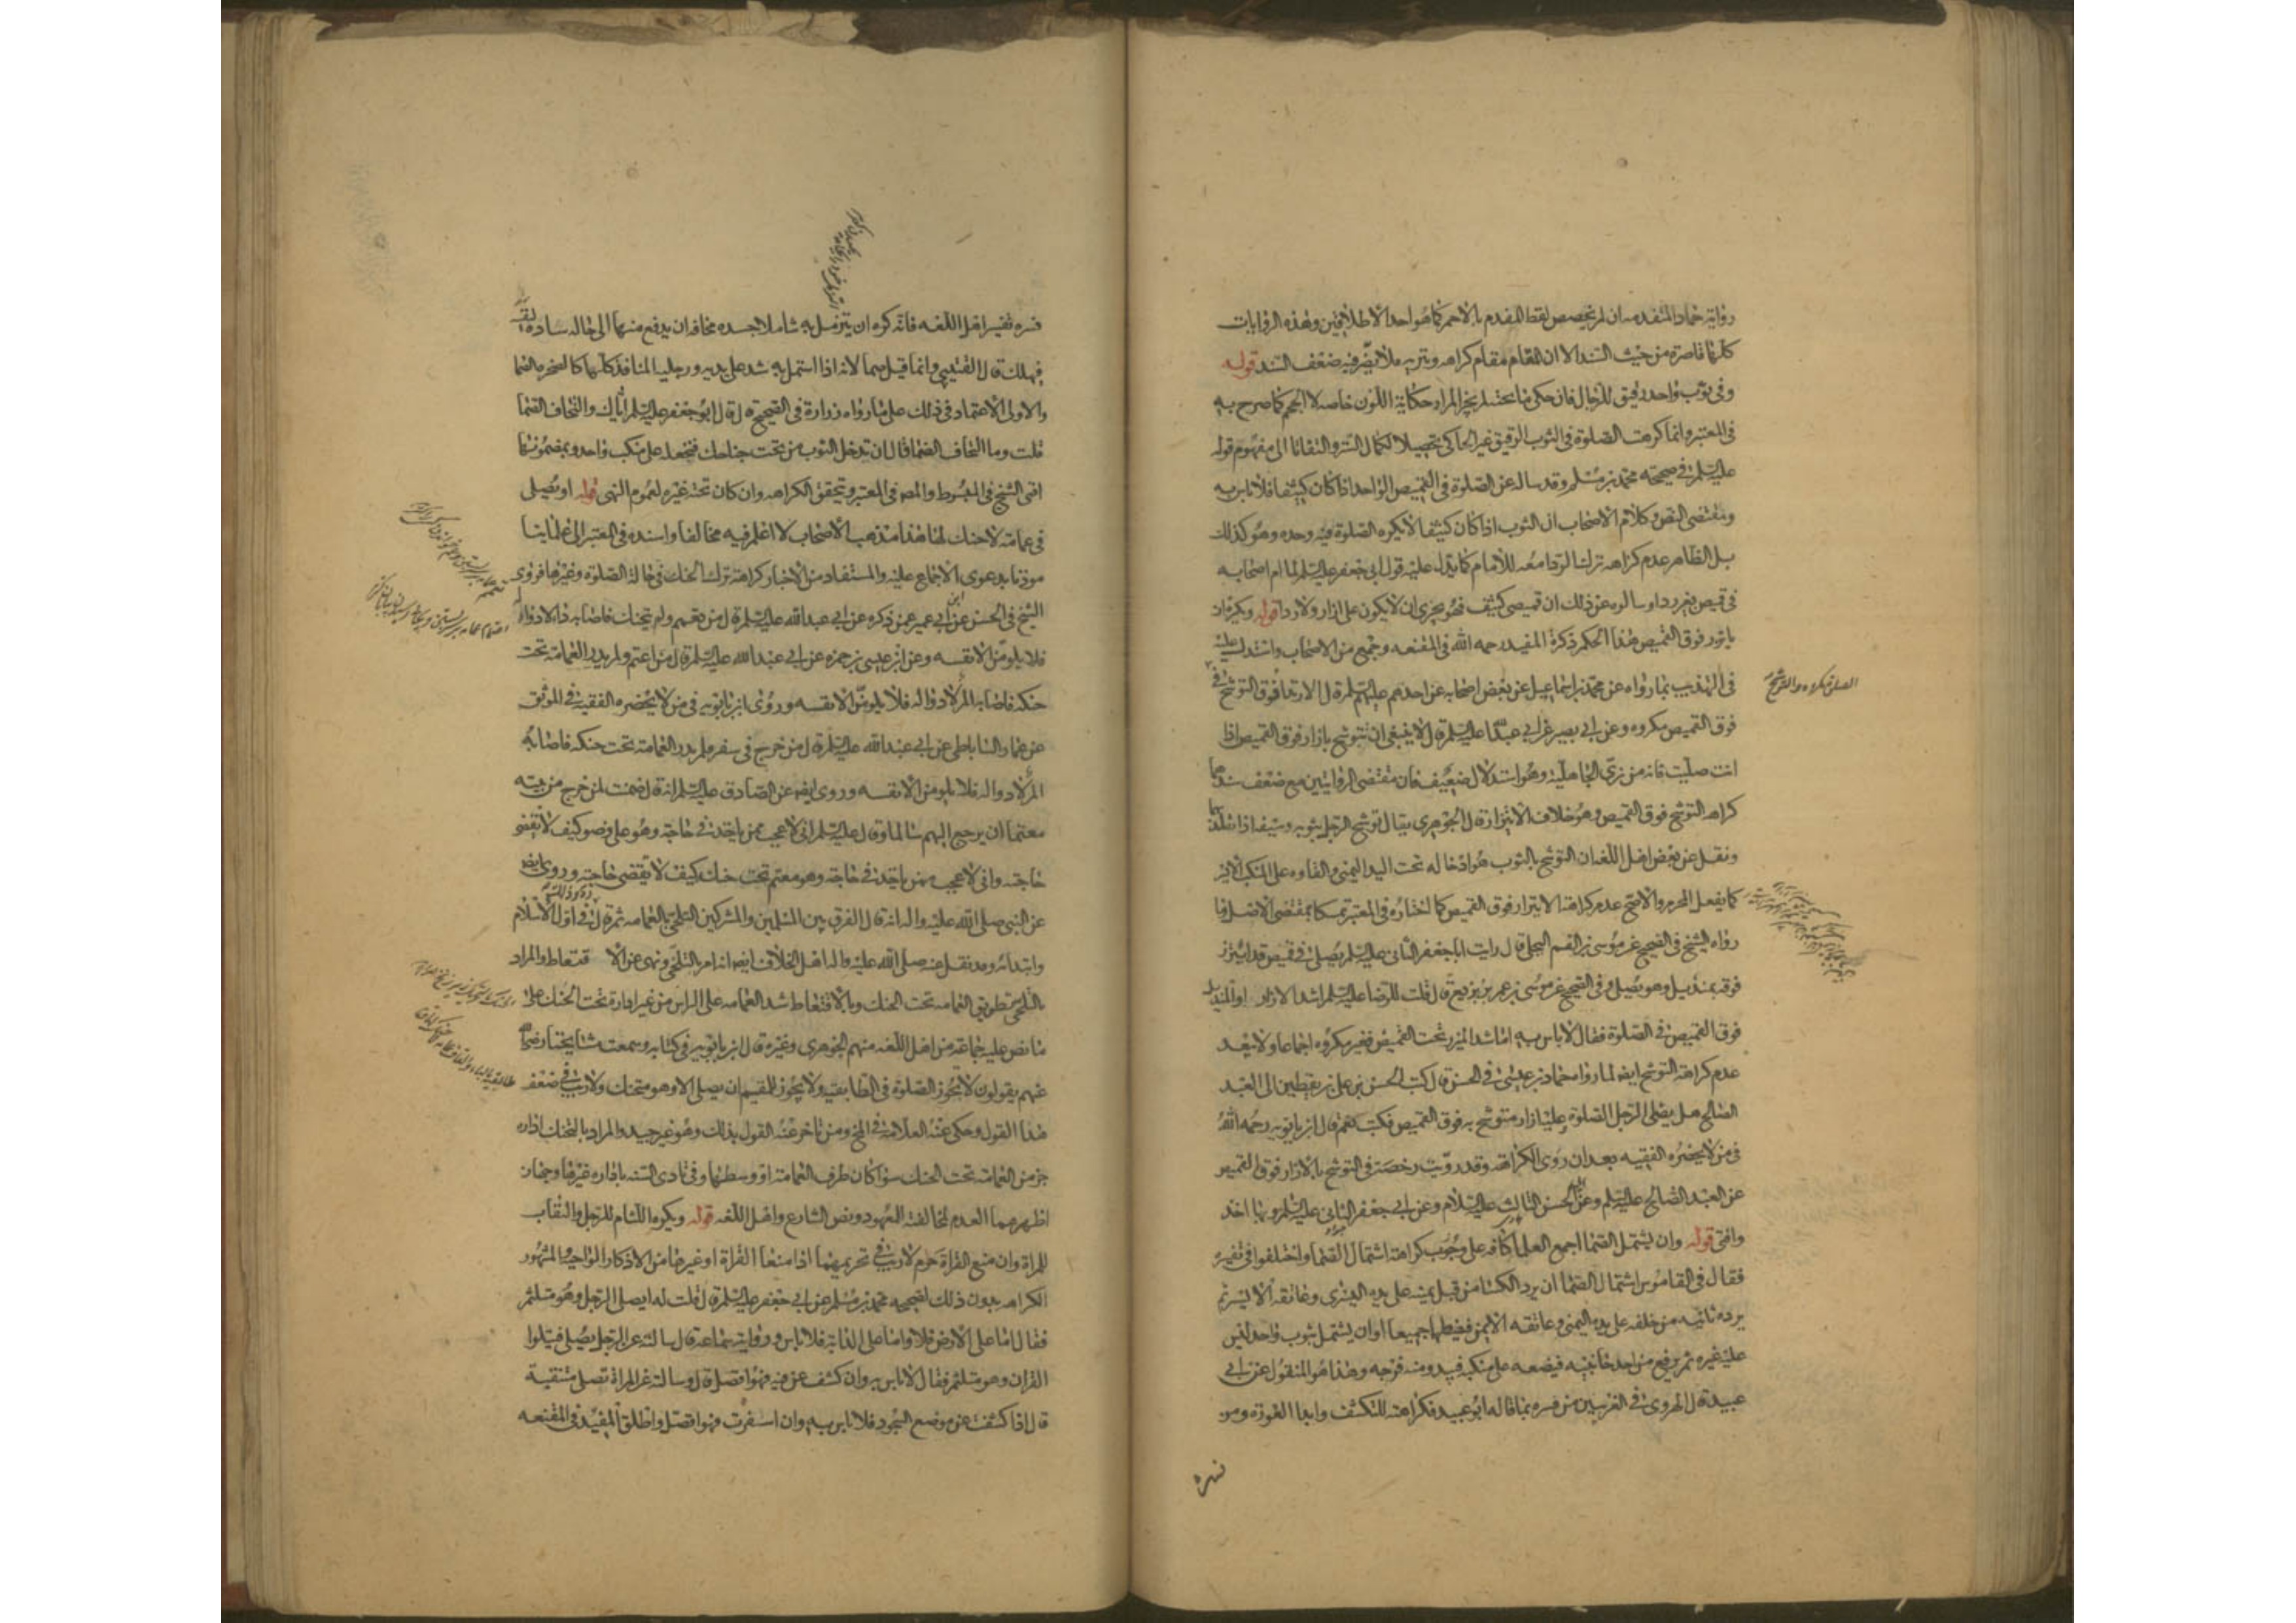 رواية حماد المتقدمه ان لم نخصص لفظ المفدم بالاحمر كما هو احد الاطلاقين وهذه الروايات
كلها قاصرة من حيث السند الا ان المقام مقام كراهه وتنزيه فلا يضر فيه ضعف السند قوله
وفي ثوب واحد رقيق للرجال فان حكى ما تحته لم يجز المراد حكاية اللون خاصه لا الحجم كما صرح به
في المعتبر وانما كرهت الصلوة في الثوب الرقيق غير الحاكي تحصيلا لكمال الستر والتفاتا الى مفهوم قوله
عليه السلم في صحيحه محمد بن مسلم وقد ساله عن الصلوة في القميص الواحد اذا كان كثيفا فلا باس به
ومقتضى النص وكلام الاصحاب ان الثوب اذا كان كثيفا لا يكره الصلوة فيه وحده وهو كذلك
بل الظاهر عدم كراهه ترك الردا معه للامام كما يدل عليه قول ابي جعفر عليه السلم لما ام اصحابه
في قميص بغير ردا وسالوه عن ذلك ان قميصي كثيف فهو يجزي ان لا يكون علي ازار ولا ردا قوله ويكره ان
ياتزر فوق القميص هذا الحكم ذكره المفيد رحمه الله في المقنعه وجمع من الاصحاب واستدل عليه
في التهذيب بما رواه عن محمد بن اسماعيل عن بعض اصحابه عن احدهم عليهم السلم قال الارتدا فوق التوشح في
فوق القميص مكروه وعن ابي بصير عن ابي عبد الله عليه السلم قال لا ينبغي ان تتوشح بازار فوق القميص اذا
انت صليت فانه من زي الجاهلية وهو استدلال ضعيف فان مقتضى الروايتين مع ضعف سندهما
كراهه التوشح فوق القميص وهو خلاف الاتزار قال الجوهري يقال توشح الرجل بثوبه وسيفه اذا تقلد بهما
ونقل عن بعض اهل اللغه ان التوشح بالثوب هو ادخاله تحت اليد اليمنى والقاوه على المنكب الايسر
كما يفعل المحرم والاصح عدم كراهة الايتزار فوق القميص كما اختاره في المعتبر تمسكا بمقتضى الاصل وما
رواه الشيخ في الصحيح عن موسى بن القسم البجلي قال رايت ابا جعفر الثاني عليه السلم يصلي في قميص قد ايتزر
فوقه بمنديل وهو يصلي وفي الصحيح عن موسى بن عمر بن بزيع قال قلت للرضا عليه السلم اشد الازار او المنديل
فوق القميص في الصلوة فقال لا باس به اما شد الميزر تحت القميص فغير مكروه اجماعا ولا يبعد
عدم كراهة التوشح ايضا لما رواه حماد بن عيسى في الحسن قال كتب الحسن بن علي بن يقطين الى العبد
الصالح هل يصلي الرجل الصلوة وعليه ازار متوشح به فوق القميص فكتب نعم قال ابن بابويه رحمه الله
في من لا يحضره الفقيه بعد ان روى الكراهة وقد رويت رخصة في التوشح بالازار فوق القميص
عن العبد الصالح عليه السلم وعن ابي الحسن الثالث عليه السلام وعن ابي جعفر الثاني عليه السلم وبها اخذ
وافتي قوله وان يشتمل الصما اجمع العلما كافه على وجوب كراهة اشتمال الصما واختلفوا في تفسيره
فقال في القاموس اشتمال الصما ان يرد الكسا من قبل يمينه على يده اليسرى وعاتقه الايسر ثم
يرده ثانيه من خلفه على يده اليمنى وعاتقه الايمن فيغطيهما جميعا او ان يشتمل بثوب واحد ليس
عليه غيره ثم يرفع من احد جانبيه فيضعه على منكبه فيبدو منه فرجه وهذا هو المنقول عن ابي
عبيدة قال الهروي في الغريبين من فسره بما قاله ابو عبيد فكراهته للتكشف وابدا العورة ومن
فسره
الصلوة مكروه والتوشح
فسره تفسير اهل اللغه فانه كره ان يتزمل به شاملا جسده مخافه ان يدفع منها الى حاله ساده لنفسه
فيهلك قال القتيبي وانما قيل صما لانه اذا اشتمل به شد على يديه ورجليه المنافذ كلها كالصخره الصما
والاولى الاعتماد في ذلك على ما رواه زرارة في الصحيح قال قال ابو جعفر عليه السلم اياك والتحاف الصما
قلت وما التحاف الصما قال ان تدخل الثوب من تحت جناحك فتجعله على منكب واحد وبمضمونها
افتى الشيخ في المبسوط والمص في المعتبر وتحقق الكراهه وان كان تحته غيره لعموم النهي قوله او يصلي
في عمامة لا حنك لها هذا مذهب الاصحاب لا اعلم فيه مخالفا واسنده في المعتبر الى علمائنا
موذنا بدعوى الاجماع عليه والمستفاد من الاخبار كراهة ترك الحنك في حالة الصلوة وغيرها فروى
الشيخ في الحسن عن ابن ابي عمير عمن ذكره عن ابي عبد الله عليه السلم قال من تعمم ولم يتحنك فاصابه دا لا دواء له
فلا يلومن الا نفسه وعن ابن عيسى بن حمزه عن ابي عبد الله عليه السلم قال من اعتم ولم يدر العمامة تحت
حنكه فاصابه الم لا دوا له فلا يلومن الا نفسه وروى ابن بابويه في من لا يحضره الفقيه في الموثق
عن عمار الساباطي عن ابي عبد الله عليه السلم قال من خرج في سفر ولم يدر العمامة تحت حنكه فاصابه
الم لا دوا له فلا يلومن الا نفسه وروى ايضا عن الصادق عليه السلم انه قال ضمنت لمن خرج من بيته
معتما ان يرجع اليهم سالما وقال عليه السلم اني لاعجب ممن ياخذ في حاجة وهو على وضو كيف لا تقضى
حاجته واني لاعجب ممن ياخذ في حاجة وهو معتم تحت حنكه كيف لا تقضى حاجته وروى ايضا
عن النبي صلى الله عليه واله انه قال الفرق بين المسلمين والمشركين التلحي بالعمامه ثم قال وذلك في اول الاسلام
وابتدائه وقد نقل عنه صلى الله عليه واله اهل الخلاف ايضا انه امر بالتلحي ونهى عن الاقتعاط والمراد
بالتلحي تطويق العمامه تحت الحنك وبالاقتعاط شد العمامه على الراس من غير ادارة تحت الحنك على
ما نص عليه جماعة من اهل اللغه منهم الجوهري وغيره قال ابن بابويه في كتابه وسمعت مشايخنا رضي الله
عنهم يقولون لا يجوز الصلوة في الطابقيه ولا يجوز للمقيم ان يصلي الا وهو متحنك ولا ريب في ضعف
هذا القول وحكى عنه العلامة في المخ ومن تاخر عنه القول بذلك وهو غير جيد والمراد بالتحنك ادارة
جز من العمامة تحت الحنك سوا كان طرف العمامة او وسطها وفي تادي السنه باداره غيرها وجهان
اظهرهما العدم لمخالفته المعهود ونص الشارع واهل اللغه قوله ويكره اللثام للرجل والنقاب
للمراة وان منع القراة حرم لا ريب في تحريمهما اذا منعا القراة او غيرها من الاذكار الواجبة والمشهور
الكراهه بدون ذلك لصحيحه محمد بن مسلم عن ابي جعفر عليه السلم قال قلت له ايصلي الرجل وهو متلثم
فقال اما على الارض فلا واما على الدابة فلا باس ورواية سماعة قال سالته عن الرجل يصلي فيتلوا
القران وهو متلثم فقال لا باس به وان كشف عن فيه فهو افضل قال وسالته عن المراة تصلي متنقبة
قال اذا كشفت عن موضع السجود فلا باس به وان اسفرت فهو افضل واطلق المفيد في المقنعه